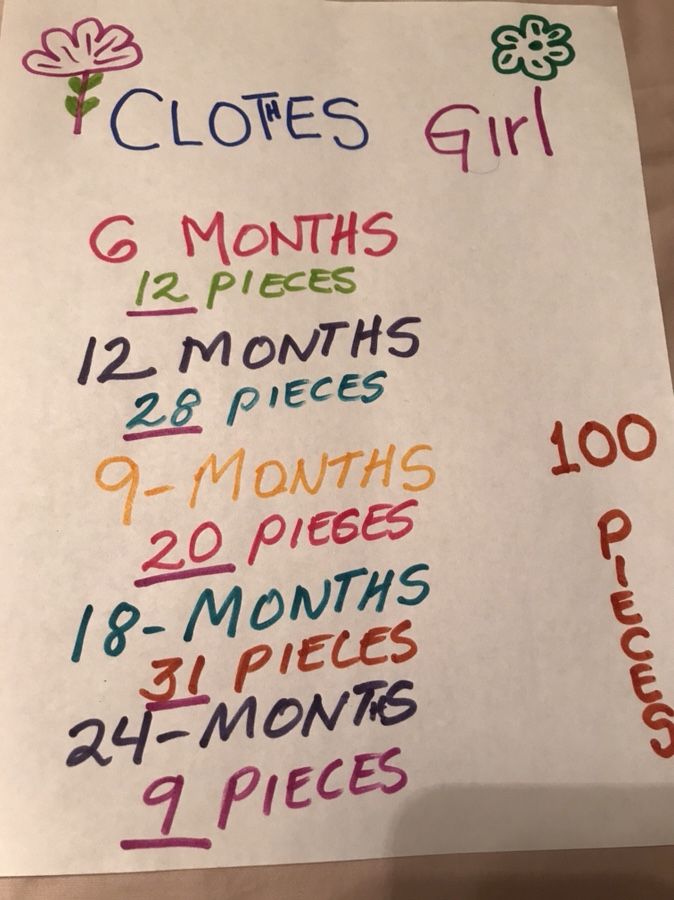 CLOTHES Girl
6 MONTHS
12 PIECES
12 MONTHS
28 PIECES
9-MONTHS
20 PIECES
18-MONTHS
31 PIECES
24-MONTHS
9 PIECES
100
PIECES